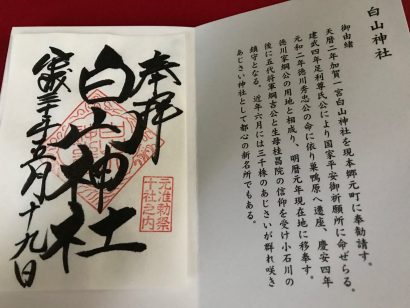 白山神社
御由緒
天暦二年加賀一宮白山神社を現本郷元町に奉勧請す。
建武四年足利尊氏公により国家平安御祈願所に命ぜらる。
元和二年徳川秀忠公の命に依り巣鴨原へ遷座、慶安四年
徳川家綱公の用地と相成り、明暦元年現在地に移奉す。
後に五代将軍綱吉公と生母桂昌院の信仰を受け小石川の
鎮守となる。近年六月には三千株のあじさいが群れ咲き
あじさい神社として都心の新名所でもある。
奉拝
白山神社
元准勅祭
十社之内
年五月十九日